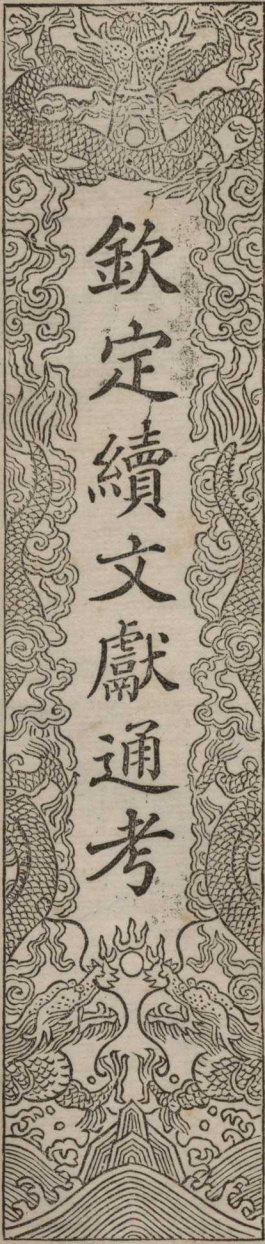 欽定續文獻通考